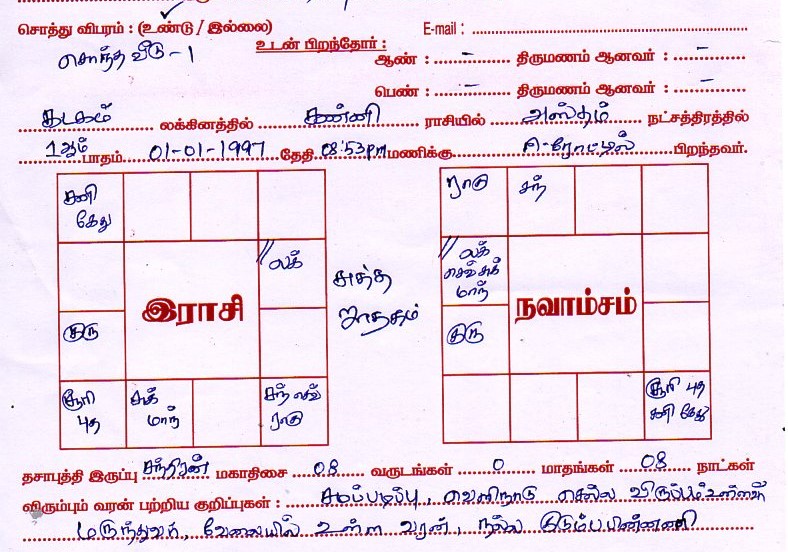 சொத்து விபரம் : (உண்டு / இல்லை) E-mail :
சொந்த வீடு - 1 உடன் பிறந்தோர் :
ஆண் : - திருமணம் ஆனவர் : -
பெண் : - திருமணம் ஆனவர் : -
கடகம் லக்கினத்தில் கன்னி ராசியில் அஸ்தம் நட்சத்திரத்தில்
1ஆம் பாதம் 01-01-1997 தேதி 08:53pm மணிக்கு ஈ-ரோட்டில் பிறந்தவர்.
சனி
கேது
லக்
குரு
சூரி
புத
சுக்
மாந்
சந் செவ்
ராகு
இராசி
சுத்த
ஜாதகம்
ராகு
சந்
லக்
செவ் சுக்
மாந்
குரு
சூரி புத
சனி கேது
நவாம்சம்
தசாபுத்தி இருப்பு சந்திரன் மகாதிசை 08 வருடங்கள் 0 மாதங்கள் 08 நாட்கள்
விரும்பும் வரன் பற்றிய குறிப்புகள் : சமப்படிப்பு, வெளிநாடு செல்ல விருப்பம் உள்ளவர்
மருந்துவர், வேலையில் உள்ள வரன், நல்ல குடும்பபிண்ணணி